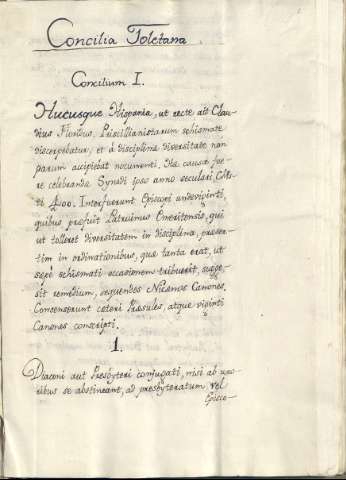 Concilia Toletana
Concilium I.
Hucusque Hispania, ut recte ait Clau-
dius Fleribus, Priscillianistarum schismate
discerpebatur, et à disciplinæ diversitate non
parum accipiebat nocumenti. Hæ causæ fue-
re celebrandæ Synodi ipso anno seculari Chris-
ti 400. Interfuerunt Episcopi undeviginti,
quibus præfuit Patruinus Emeritensis, qui
ut tolleret diversitatem in disciplina, præser-
tim in ordinationibus, quæ tanta erat, ut
sepe schismati occasionem tribuerit, sugge-
sit remedium, sequendos Nicænos Canones.
Consenserunt ceteri Præsules, atque viginti
Canones conscripti.
1.
Diaconi aut Presbyteri conjugati, nisi ab uxo-
ribus se abstineant, ad presbyteratum vel
Episco-